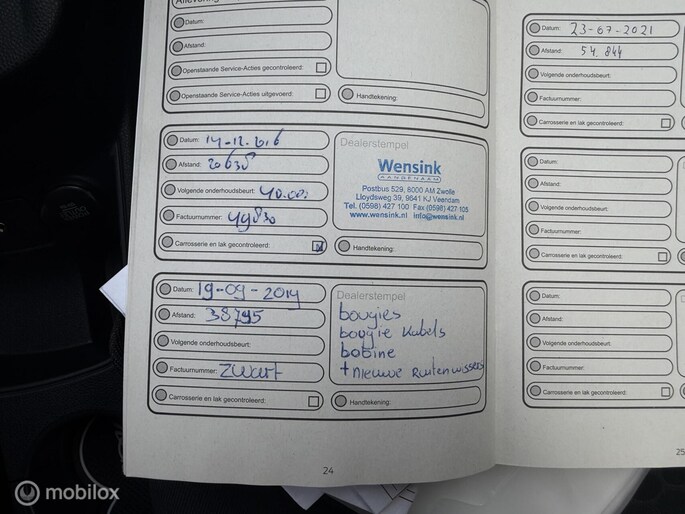 Aflevering
Datum:
Afstand:
Openstaande Service-Acties gecontroleerd:
Openstaande Service-Acties uitgevoerd:
Handtekening:
Datum: 14-12-2016
Afstand: 20638
Volgende onderhoudsbeurt: 40.000
Factuurnummer: 49830
Carrosserie en lak gecontroleerd:
Dealerstempel
Wensink
Postbus 529, 8000 AM Zwolle
Lloydsweg 39, 9641 KJ Veendam
Tel. (0598) 427 100 Fax (0598) 427 105
www.wensink.nl info@wensink.nl
Handtekening:
Datum: 19-09-2019
Afstand: 38795
Volgende onderhoudsbeurt:
Factuurnummer: zwart
Carrosserie en lak gecontroleerd:
Dealerstempel
bougies
bougie kabels
bobine
+ nieuwe Ruitenwissers
Handtekening:
24
Datum: 23-07-2021
Afstand: 54.844
Volgende onderhoudsbeurt:
Factuurnummer:
Carrosserie en lak gecontroleerd:
Datum:
Afstand:
Volgende onderhoudsbeurt:
Factuurnummer:
Carrosserie en lak gecontroleerd:
Datum:
Afstand:
Volgende onderhoudsbeurt:
Factuurnummer:
Carrosserie en lak gecontroleerd:
25
mobilox